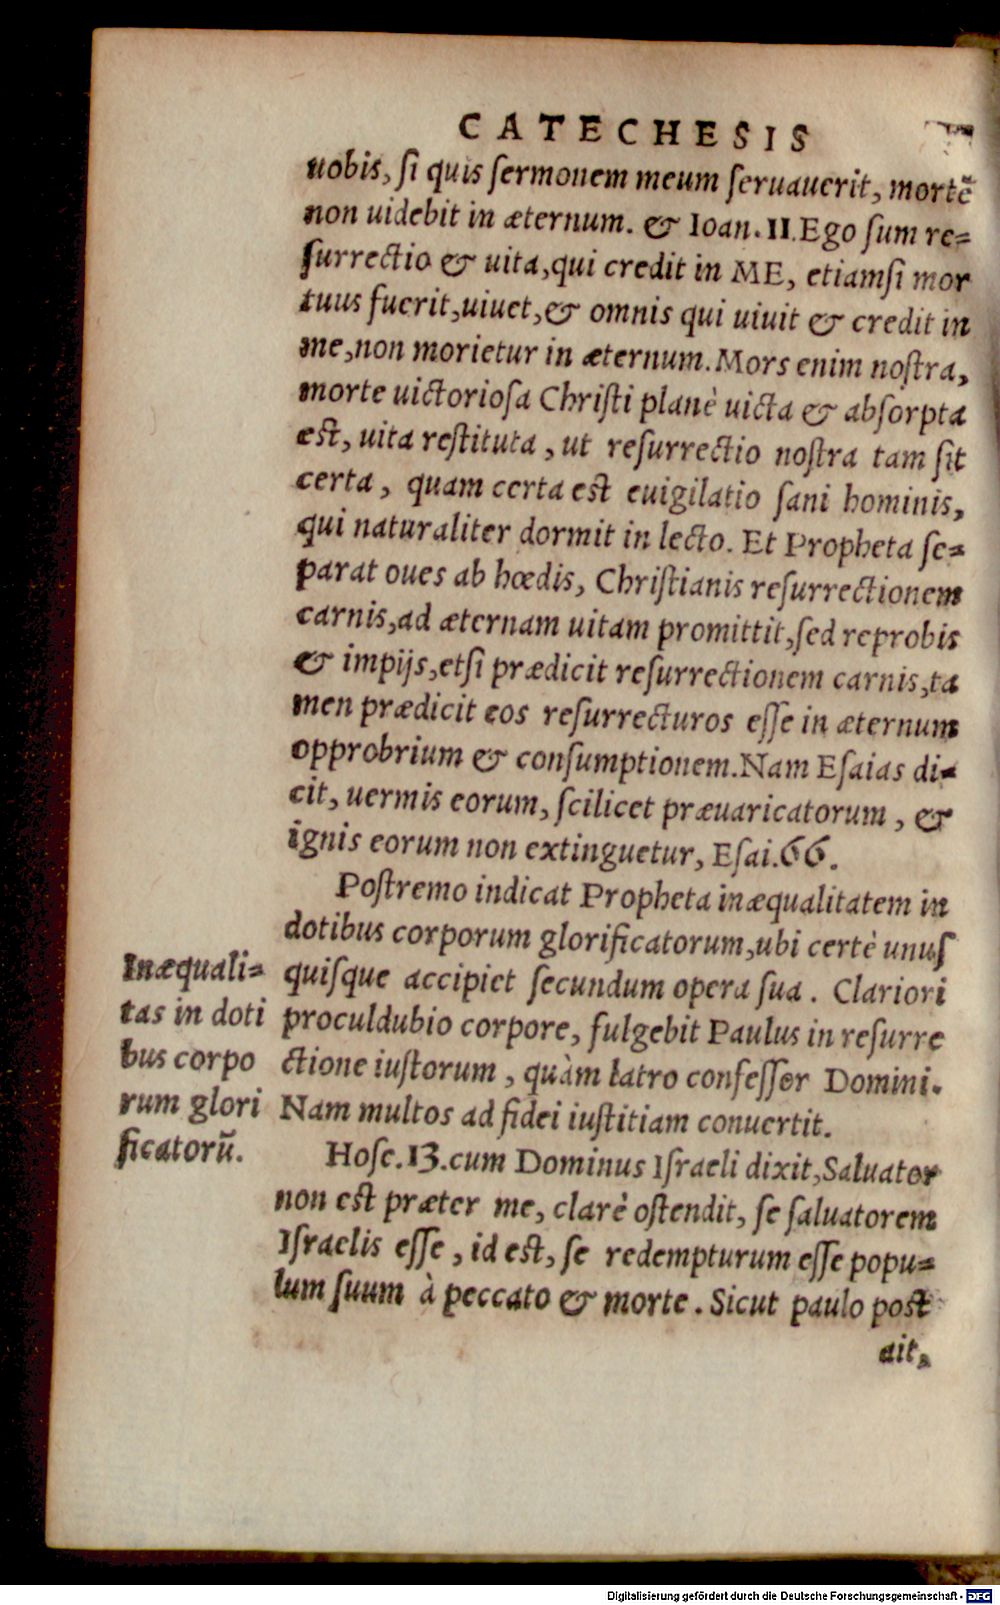 CATECHESIS
uobis, ſi quis ſermonem meum ſeruauerit, mortẽ
non uidebit in æternum. & Ioan. II. Ego ſum re=
ſurrectio & uita, qui credit in ME, etiamſi mor
tuus fuerit, uiuet, & omnis qui uiuit & credit in
me, non morietur in æternum. Mors enim noſtra,
morte uictorioſa Chriſti planè uicta & abſorpta
eſt, uita reſtituta, ut reſurrectio noſtra tam ſit
certa, quam certa eſt euigilatio ſani hominis,
qui naturaliter dormit in lecto. Et Propheta ſe=
parat oues ab hœdis, Chriſtianis reſurrectionem
carnis, ad æternam uitam promittit, ſed reprobis
& impijs, etſi prædicit reſurrectionem carnis, ta
men prædicit eos reſurrecturos eſſe in æternum
opprobrium & conſumptionem. Nam Eſaias di=
cit, uermis eorum, ſcilicet præuaricatorum, &
ignis eorum non extinguetur, Eſai. 66.
Poſtremo indicat Propheta inæqualitatem in
dotibus corporum glorificatorum, ubi certè unuſ
quiſque accipiet ſecundum opera ſua. Clariori
proculdubio corpore, fulgebit Paulus in reſurre
ctione iuſtorum, quàm latro confeſſor Domini.
Nam multos ad fidei iuſtitiam conuertit.
Inæquali=
tas in doti
bus corpo
rum glori
ficatorũ.
Hoſe. 13. cum Dominus Iſraeli dixit, Saluator
non eſt præter me, clarè oſtendit, ſe ſaluatorem
Iſraelis eſſe, id eſt, ſe redempturum eſſe popu=
lum ſuum à peccato & morte. Sicut paulo poſt
ait,
Digitalisierung gefördert durch die Deutsche Forschungsgemeinschaft - DFG